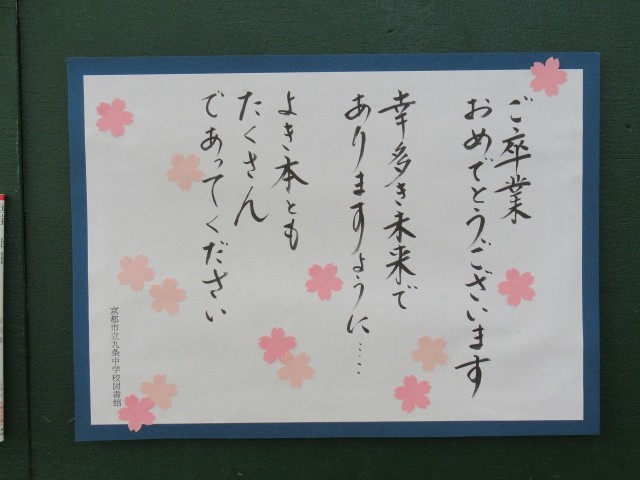 ご卒業
おめでとうございます
幸多き未来で
ありますように……
よき本とも
たくさん
であってください
京都市立九条中学校図書館